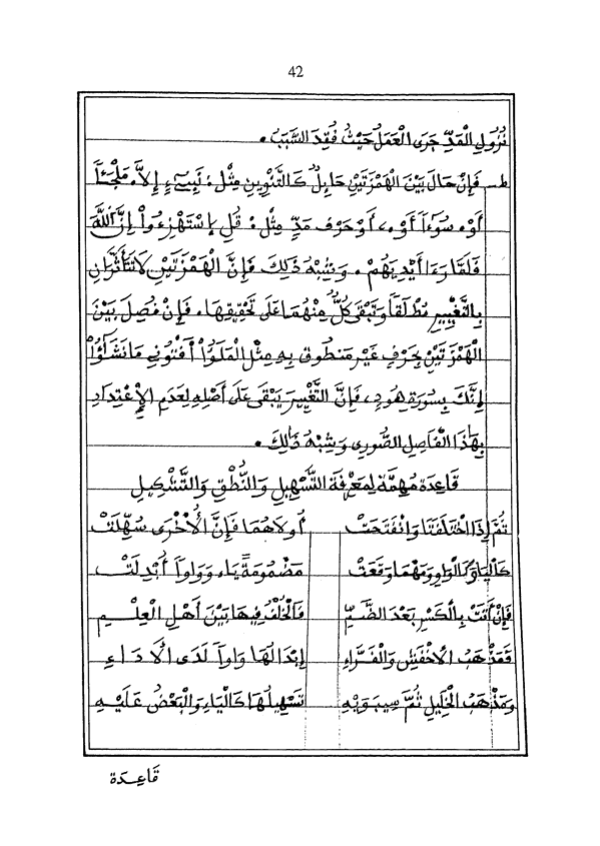 42
نُزُولِ الْمَدِّ جَرَى الْعَمَلُ حَيْثُ فُقِدَ السَّبَبُ .
ط ـ فَإِنْ حَالَ بَيْنَ الْهَمْزَتَيْنِ حَائِلٌ كَالتَّنْوِينِ مِثْلُ لِيَسِيءٍ إِلاَّ مَلْجَـٔاً
أَوْ سُوٓءاً أَوْ ، أَوْ حَرْفُ مَدٍّ مِثْلُ قُلِ إِسْتَهْزِءُوٓاْ إِنَّ اَللَّهَ
فَلَمَّا رَءَآ أَيْدِيَهُمْ . وَشِبْهُ ذَلِكَ فَإِنَّ الْهَمْزَتَيْنِ لاَ تَتَأَثَّرَانِ
بِالتَّغْيِيرِ مُطْلَقاً وَتَبْقَى كُلٌّ مِنْهُمَا عَلَى تَحْقِيقِهَا ، فَإِنْ فُصِلَ بَيْنَ
الْهَمْزَتَيْنِ بِحَرْفٍ غَيْرِ مَنْطُوقٍ بِهِ مِثْلُ الْمَلَؤُاْ أَفْتُونِي مَا نَشَـٰٓؤُاْ
إِنَّكَ بِسُورَةِ هُودٍ ، فَإِنَّ التَّغْيِيرَ يَبْقَى عَلَى أَصْلِهِ لِعَدَمِ الْإِعْتِدَادِ
بِهَٰذَا الْفَاصِلِ الصُّورِي وَشِبْهُ ذَٰلِكَ .
قَاعِدَة مُهِمَّة لِمَعْرِفَةِ التَّسْهِيلِ وَالنُّطْقِ وَالتَّشْكِيلِ
ثُمَّ إِذَا اخْتَلَفَتَا وَانْفَتَحَتْ أُولاَهُمَا فَإِنَّ الْأُخْرَى سُهِّلَتْ
كَالْيَا وَكَالْوَاوِ وَمَهْمَا وَقَعَتْ مَضْمُومَةً يَاء وَوَاواً أُبْدِلَتْ
فَإِنْ أَتَتْ بِالْكَسْرِ بَعْدَ الضَّمِّ فَالْخُلْفُ فِيهَا بَيْنَ أَهْلِ الْعِلْمِ
فَمَذْهَبُ الْأَخْفَشِ وَالْفَرَّاءِ إِبْدَالُهَا وَاواً لَدَى الْأَدَاءِ
وَمَذْهَبُ الْخَلِيلِ ثُمَّ سِيبَوَيْهِ تَسْهِيلُهَا كَالْيَاءِ وَالْبَعْضُ عَلَيْهِ
قَاعِدَة